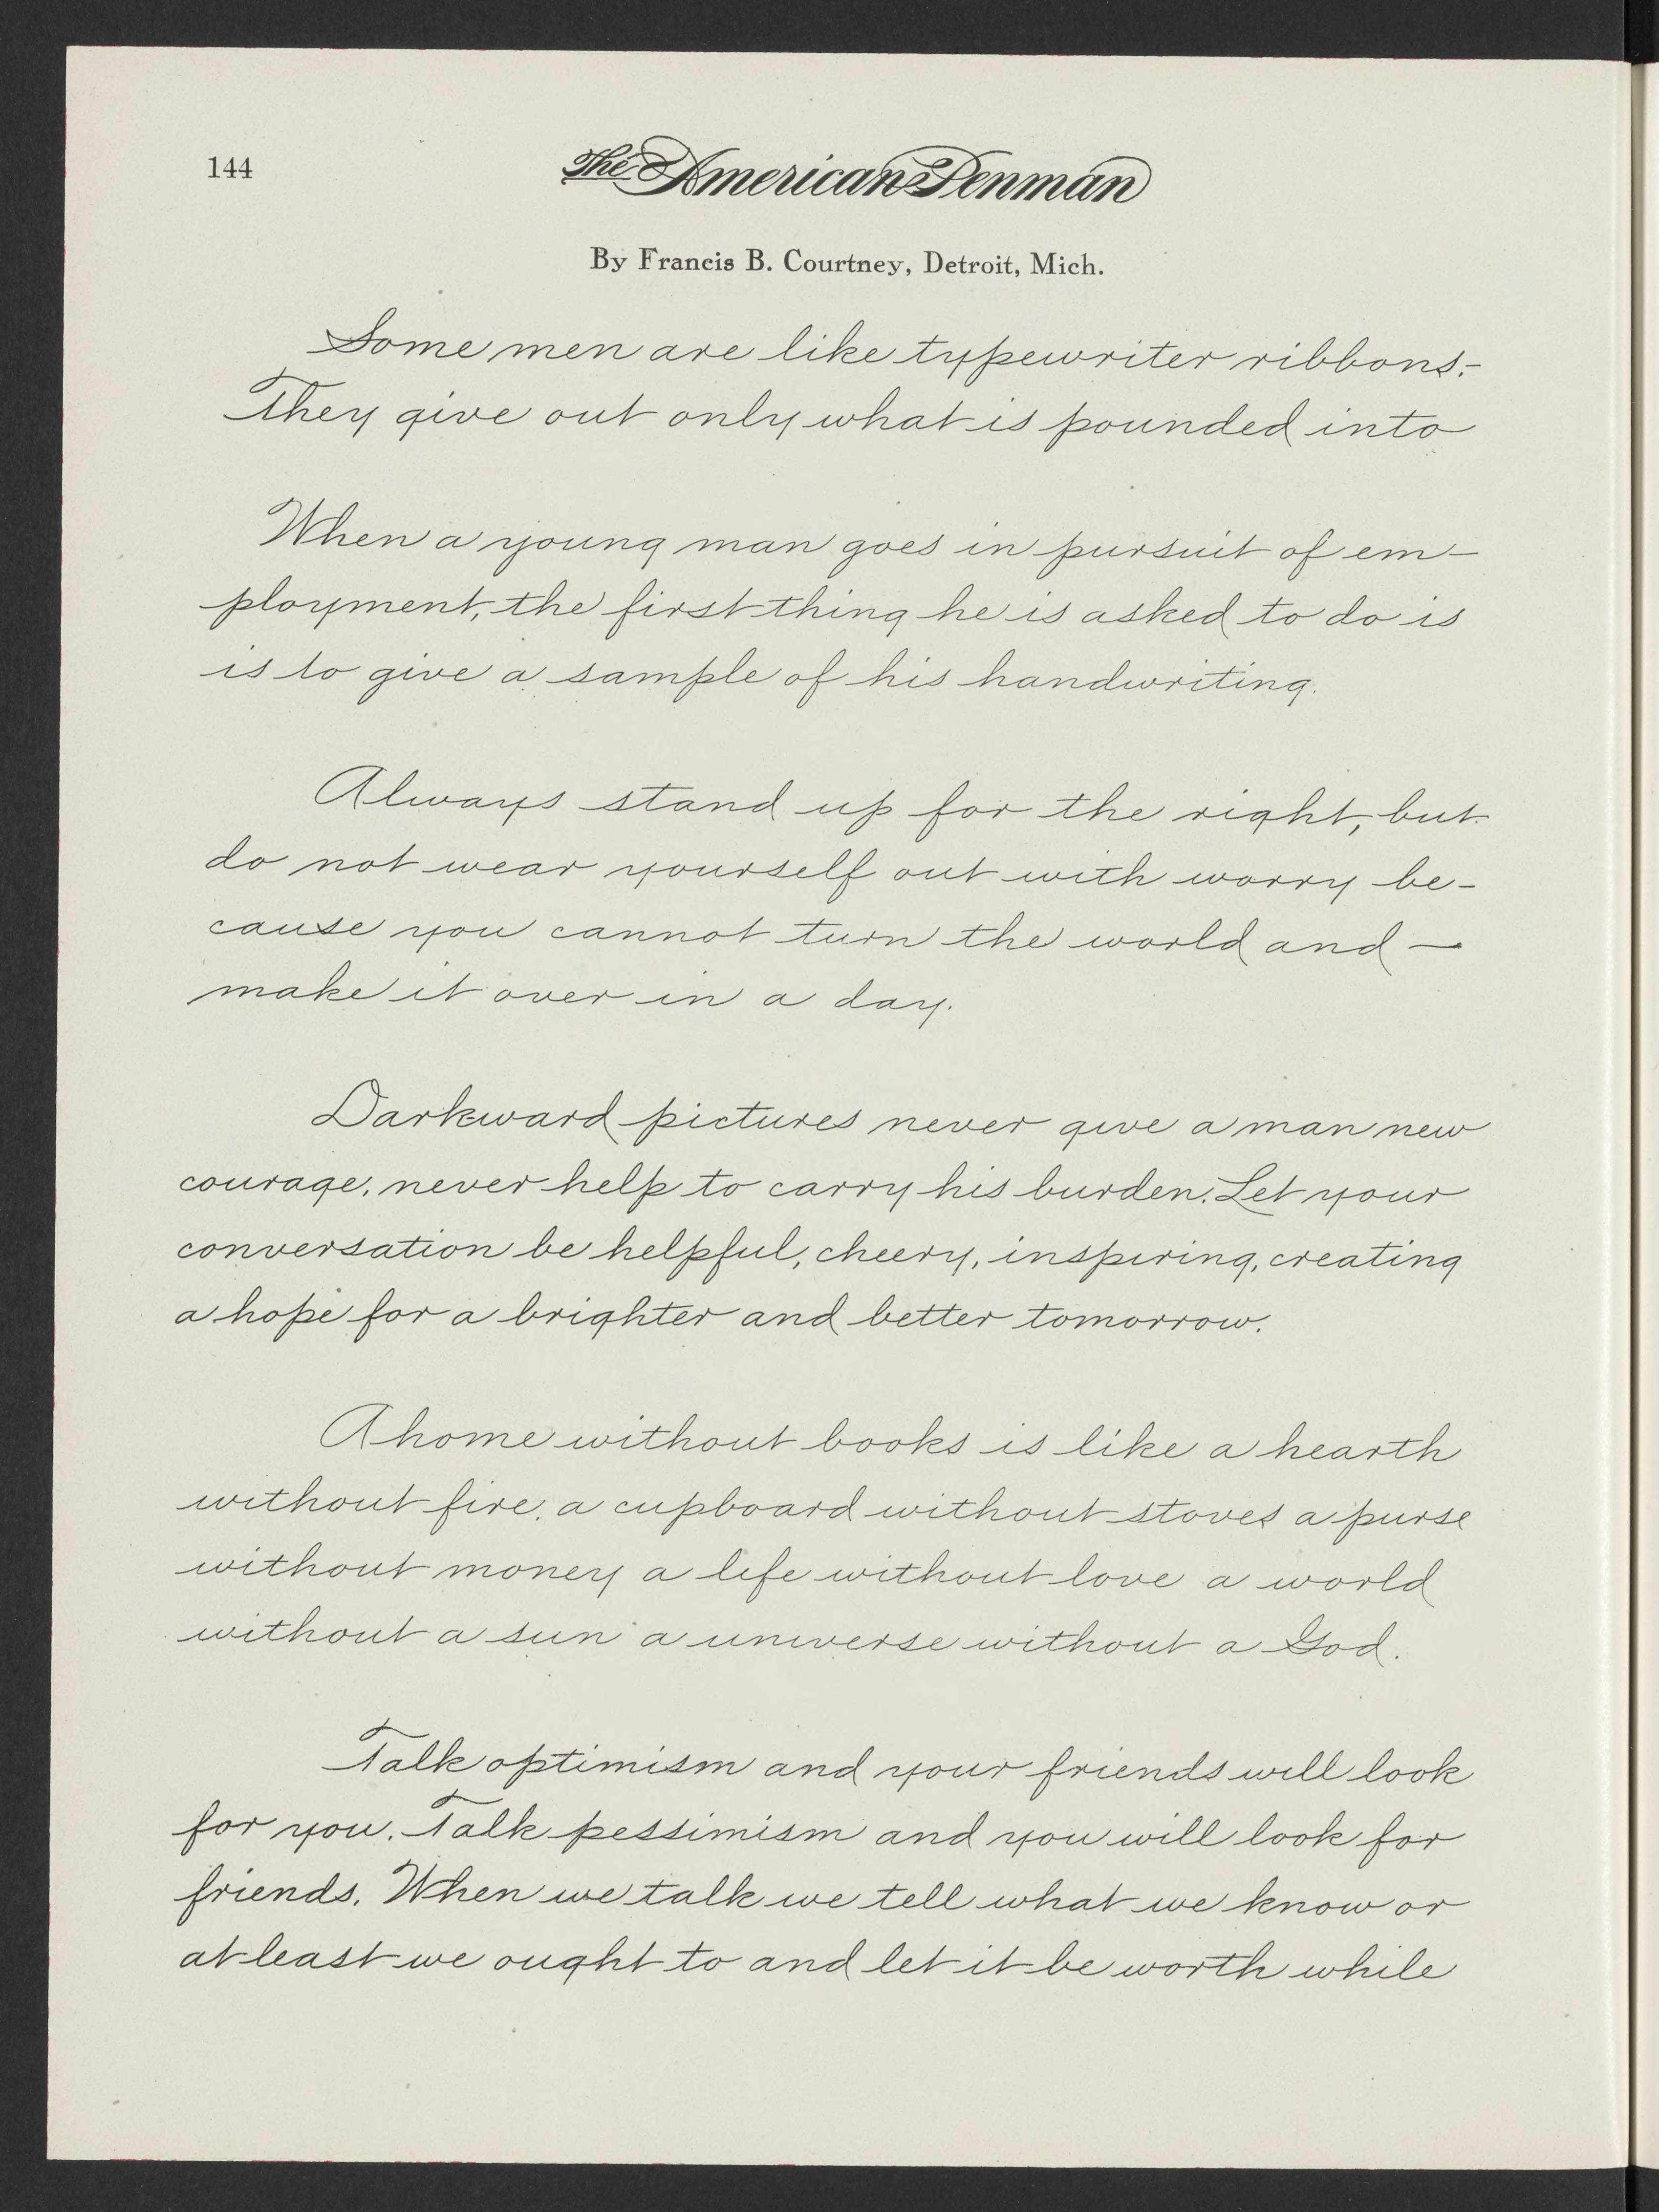 144
The American Penman
By Francis B. Courtney, Detroit, Mich.
Some men are like typewriter ribbons:-
They give out only what is pounded into
When a young man goes in pursuit of em-
ployment, the first thing he is asked to do is
is to give a sample of his handwriting.
Always stand up for the right, but
do not wear yourself out with worry be-
cause you cannot turn the world and —
make it over in a day.
Darkward pictures never give a man new
courage, never help to carry his burden. Let your
conversation be helpful, cheery, inspiring, creating
a hope for a brighter and better tomorrow.
A home without books is like a hearth
without fire, a cupboard without stores a purse
without money a life without love a world
without a sun a universe without a God.
Talk optimism and your friends will look
for you. Talk pessimism and you will look for
friends. When we talk we tell what we know or
at least we ought to and let it be worth while